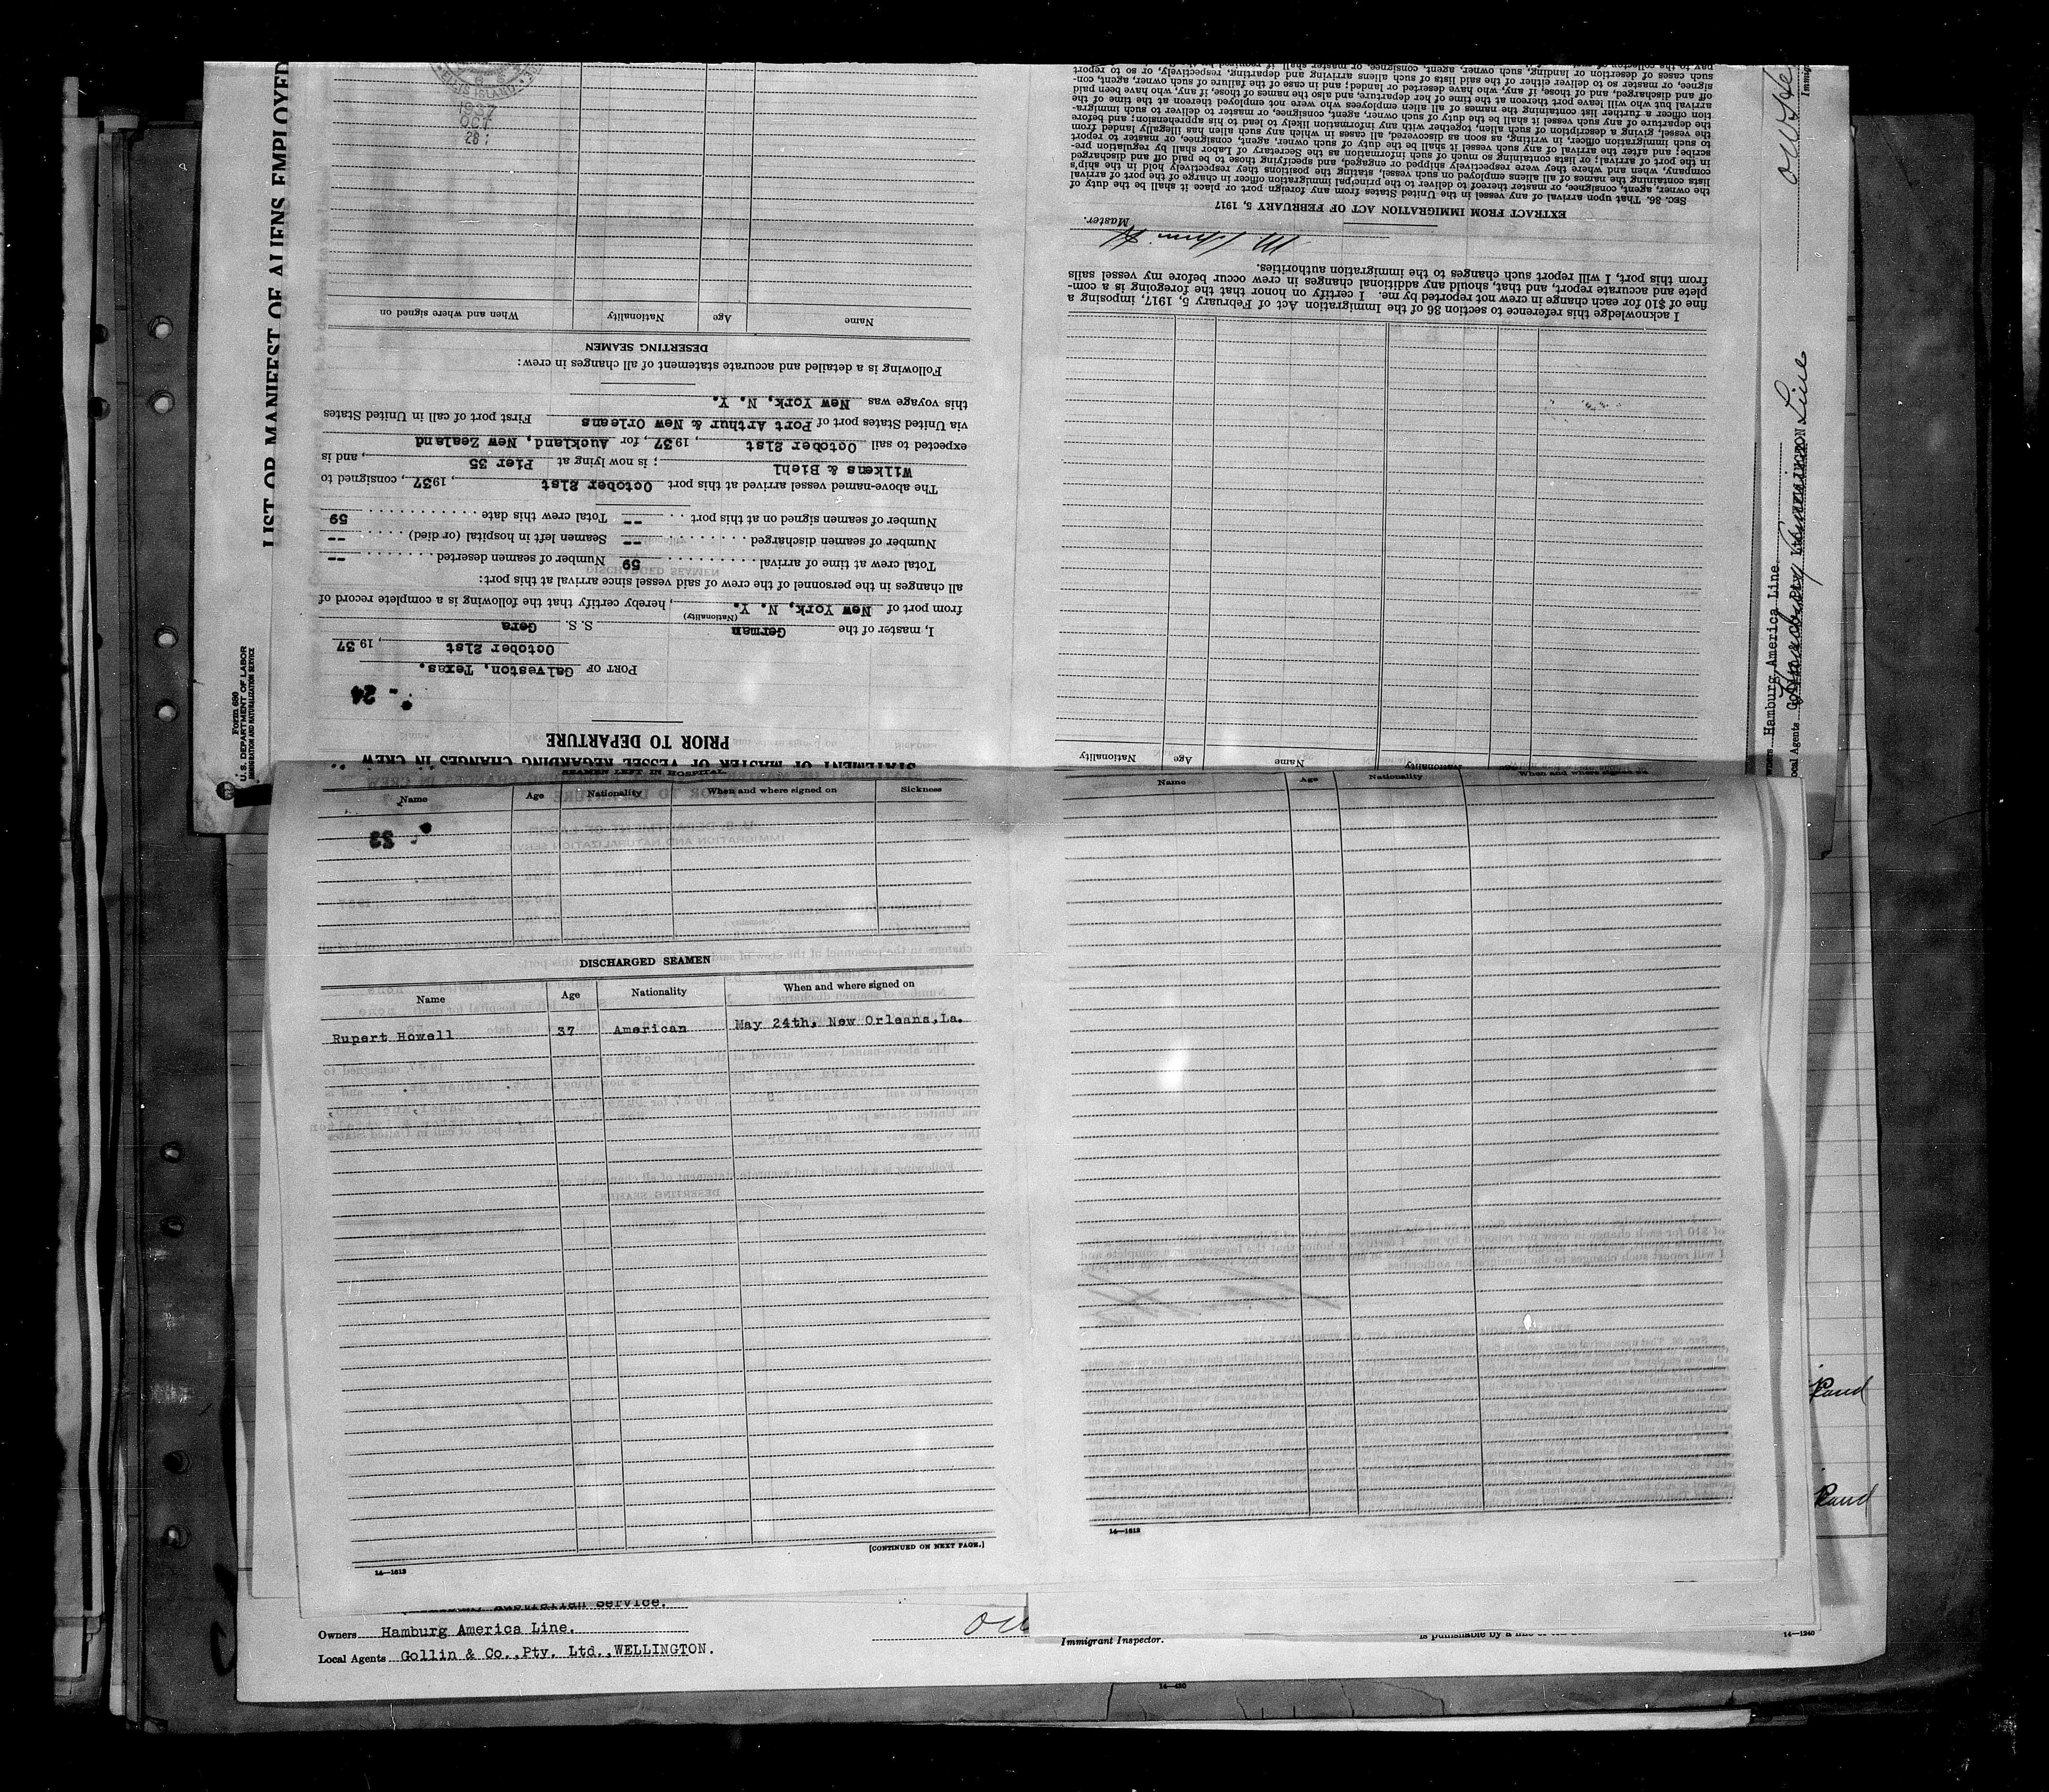 STATEMENT OF MASTER OF VESSEL REGARDING CHANGES IN CREW
PRIOR TO DEPARTURE
24
PORT OF Galveston, Texas.
October 21st, 1937
I, master of the German S. S. Gera
(Nationality)
from port of New York, N. Y., hereby certify that the following is a complete record of
all changes in the personnel of the crew of said vessel since arrival at this port:
Total crew at time of arrival 59 Number of seamen deserted --
Number of seamen discharged -- Seamen left in hospital (or died) --
Number of seamen signed on at this port -- Total crew this date 59
The above-named vessel arrived at this port October 21st, 1937, consigned to
Wilkens & Biehl; is now lying at Pier 35, and is
expected to sail October 21st, 1937, for Auckland, New Zealand
via United States port of Port Arthur & New Orleans First port of call in United States
this voyage was New York, N. Y.
Following is a detailed and accurate statement of all changes in crew:
DESERTING SEAMEN
Name Age Nationality When and where signed on
ELLIS ISLAND
1937
OCT
28
Name Age Nationality
I acknowledge this reference to section 36 of the Immigration Act of February 5, 1917, imposing a
fine of $10 for each change in crew not reported by me. I certify on honor that the foregoing is a com-
plete and accurate report, and that, should any additional changes in crew occur before my vessel sails
from this port, I will report such changes to the immigration authorities.
Master.
EXTRACT FROM IMMIGRATION ACT OF FEBRUARY 5, 1917
SEC. 36. That upon arrival of any vessel in the United States from any foreign port or place it shall be the duty of
the owner, agent, consignee, or master thereof to deliver to the principal immigration officer in charge of the port of arrival
lists containing the names of all aliens employed on such vessel, stating the positions they respectively hold in the ship's
company, when and where they were respectively shipped or engaged, and specifying those to be paid off and discharged
in the port of arrival; or lists containing so much of such information as the Secretary of Labor shall by regulation pre-
scribe; and after the arrival of any such vessel it shall be the duty of such owner, agent, consignee, or master to report
to such immigration officer, in writing, as soon as discovered, all cases in which any such alien has illegally landed from
the vessel, giving a description of such alien, together with any information likely to lead to his apprehension; and before
the departure of any such vessel it shall be the duty of such owner, agent, consignee, or master to deliver to such immigra-
tion officer a further list containing the names of all alien employees who were not employed thereon at the time of the
arrival but who will leave port thereon at the time of her departure, and also the names of those, if any, who have been paid
off and discharged, and of those, if any, who have deserted or landed; and in case of the failure of such owner, agent, con-
signee, or master so to deliver either of the said lists of such aliens arriving and departing, respectively, or so to report
such cases of desertion or landing, such owner, agent, consignee, or master shall
LIST OR MANIFEST OF ALIENS EMPLOYED
Form 680
U. S. DEPARTMENT OF LABOR
IMMIGRATION AND NATURALIZATION SERVICE
Owners Hamburg America Line.
Local Agents
Line
SEAMEN LEFT IN HOSPITAL
Name Age Nationality When and where signed on Sickness
DISCHARGED SEAMEN
Name Age Nationality When and where signed on
Rupert Howell 37 American May 24th, New Orleans,La.
[CONTINUED ON NEXT PAGE.]
14—1613
Name Age Nationality When and where signed on
14—1613
Australian Service.
Owners Hamburg America Line.
Local Agents Gollin & Co.,Pty. Ltd.,WELLINGTON.
Immigrant Inspector.
is punishable by a fine
14—1240